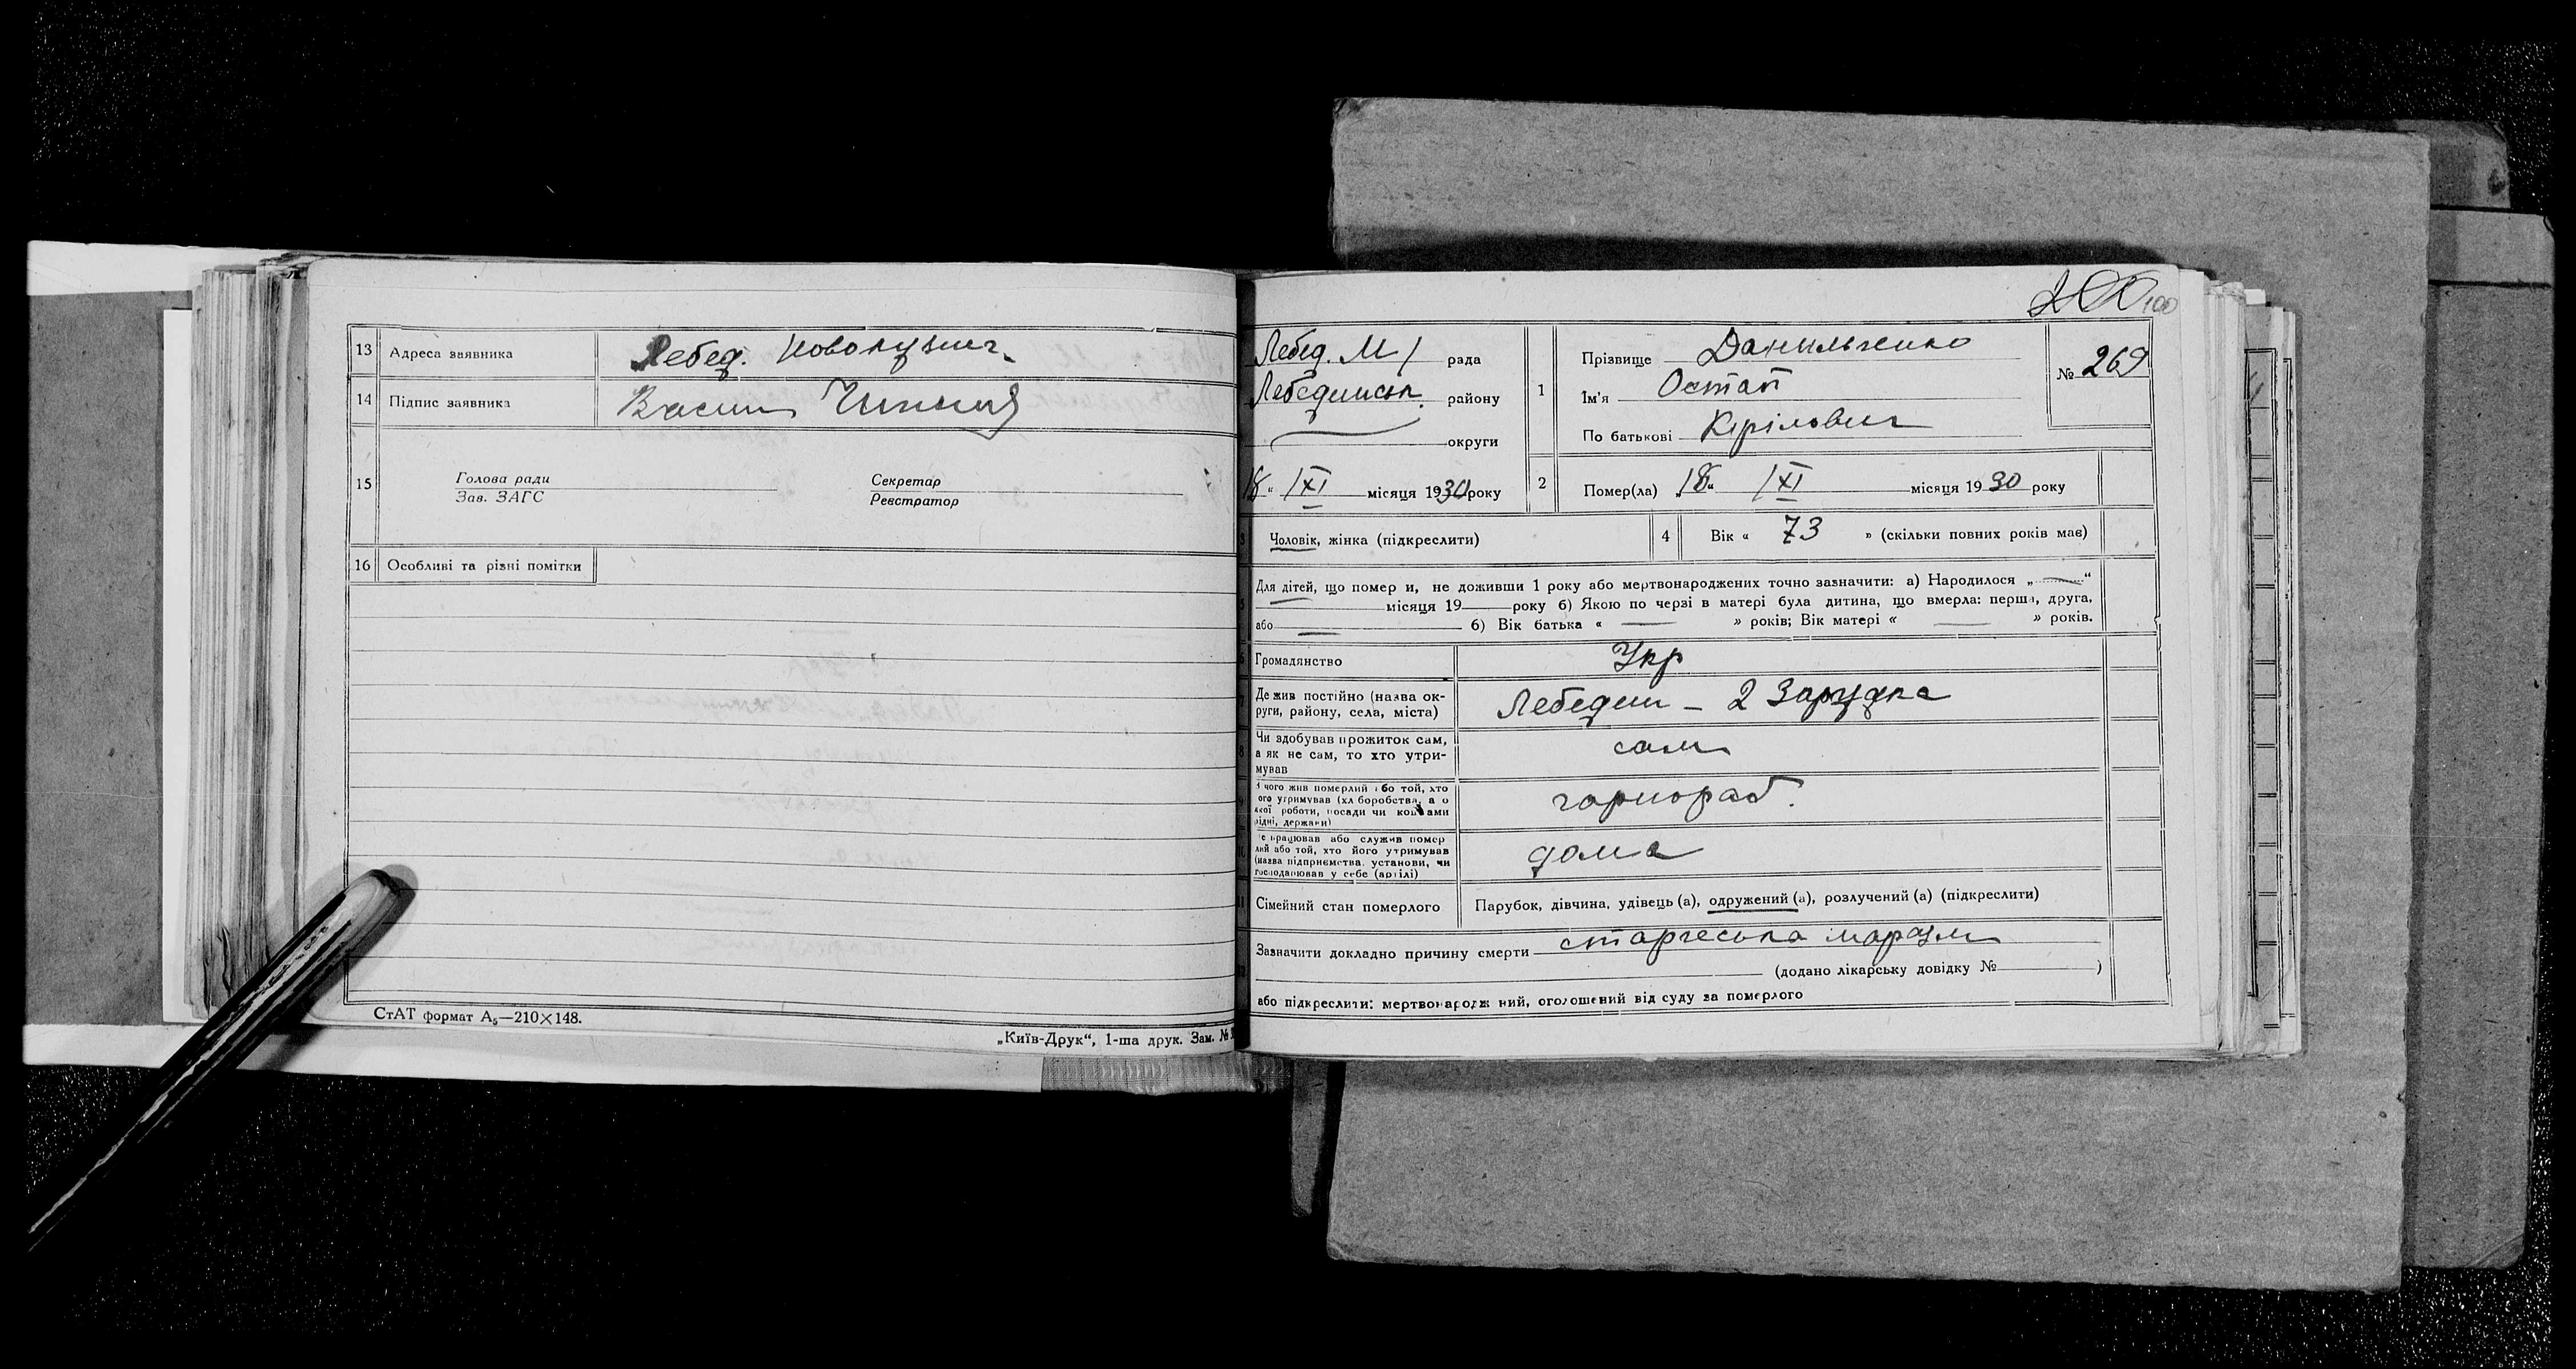 13 Адреса заявника Лебед. Новокузнич.
14 Підпис заявника Василь
15 Голова ради Секретар
Зав. ЗАГС Реєстратор
16 Особливі та різні помітки
СтАТ формат А₅—210×148.
„Київ-Друк“, 1-ша друк. Зам. №
200 100
Лебед. М/ рада
Лебединськ. району
округи
18 “ /XI місяця 1930 року
1 Прізвище Данильченко
Ім'я Остап
По батькові Кірілович
№ 269
2 Помер(ла) „18“ /XI місяця 1930 року
3 Чоловік, жінка (підкреслити)
4 Вік « 73 » (скільки повних років має)
Для дітей, що помер и, не доживши 1 року або мертвонароджених точно зазначити: а) Народилося „ — “
місяця 19 року б) Якою по черзі в матері була дитина, що вмерла: перша, друга,
або — б) Вік батька « — » років; Вік матері « — » років.
Громадянство Укр
Де жив постійно (назва ок-
руги, району, села, міста) Лебедин – 2 Зарудка
Чи здобував прожиток сам,
а як не сам, то хто утри-
мував сам
З чого жив померлий або той, хто
його утримував (хліборобства, а о
якої роботи, посади чи коштами
рідні, держави) чорнораб.
Де працював або служив помер
лий або той, хто його утримував
(назва підприємства, установи, чи
господарював у себе (артілі) дома
11 Сімейний стан померлого Парубок, дівчина, удівець (а), одружений (а), розлучений (а) (підкреслити)
Зазначити докладно причину смерти старческа маразм
(додано лікарську довідку № )
або підкреслити: мертвонародж ний, оголошений від суду за померлого